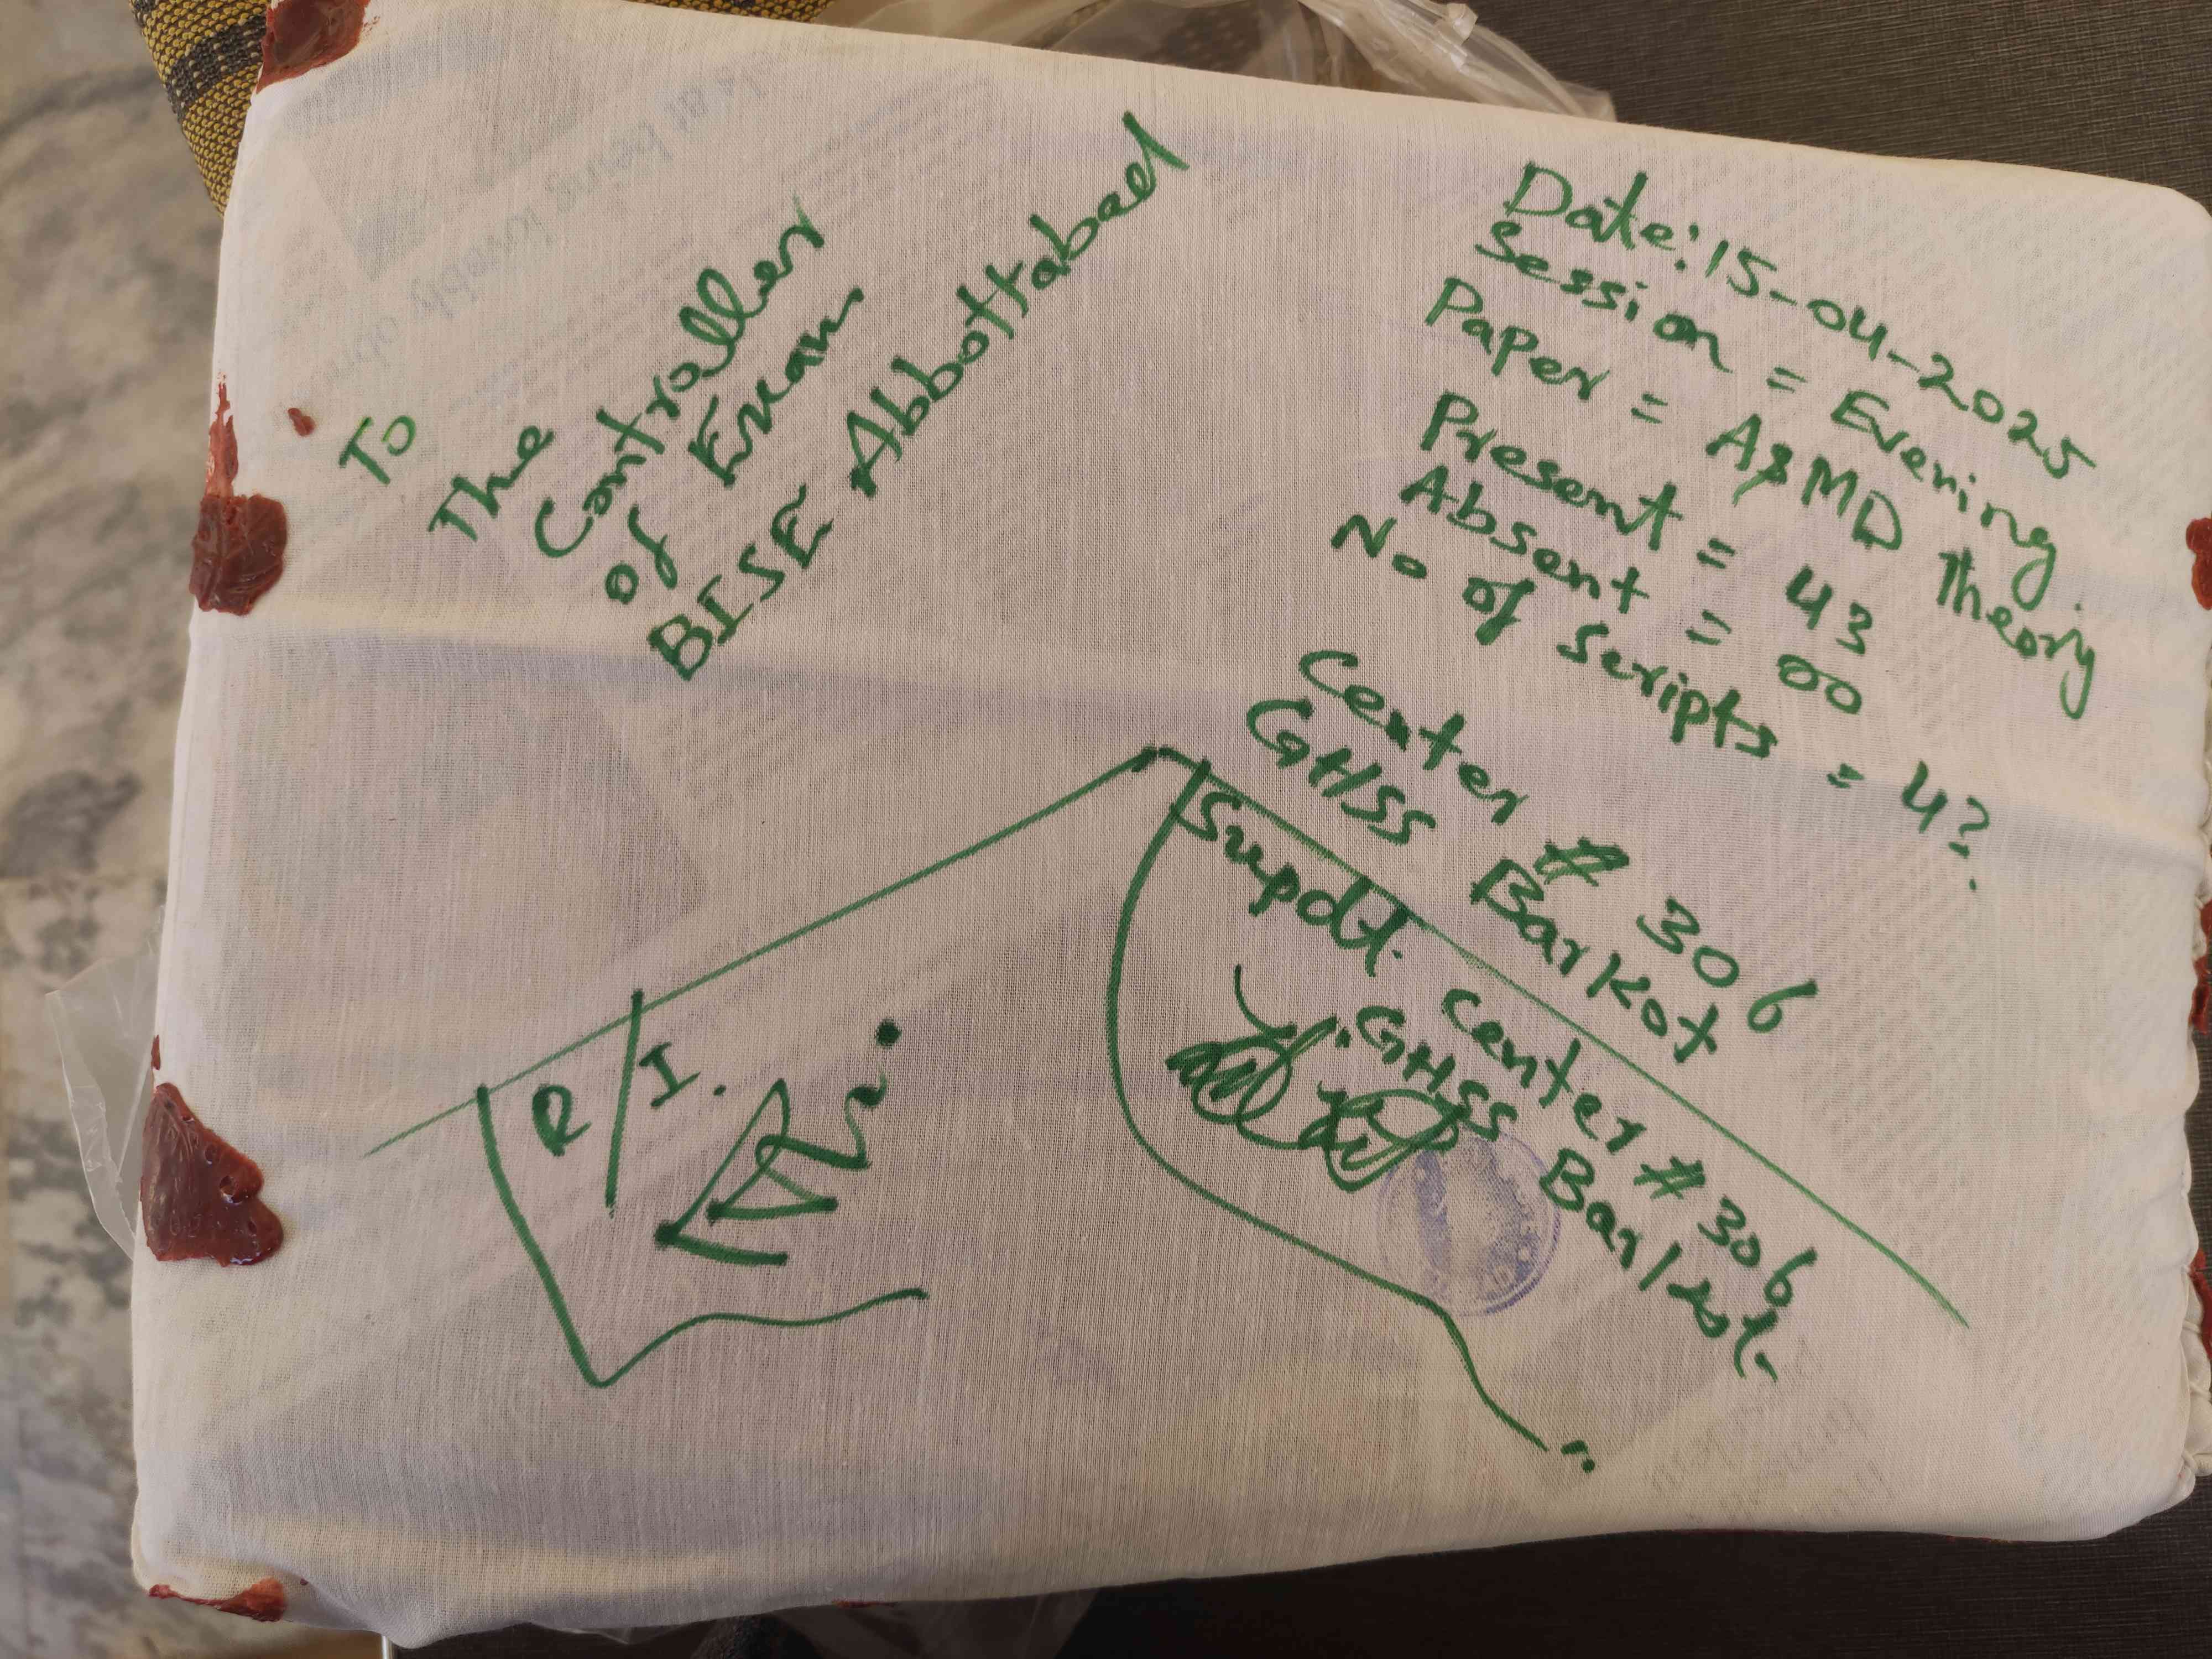 To
The
Controller
of Exam
BISE Abbottabad
Date: 15-04-2025
Session = Evening.
Paper = A&MD Theory
Present = 43
Absent = 00
No of Scripts = 43.
Center # 306
GHSS Barkot
Supdt. Center # 306
GHSS Barkot.
R/I.